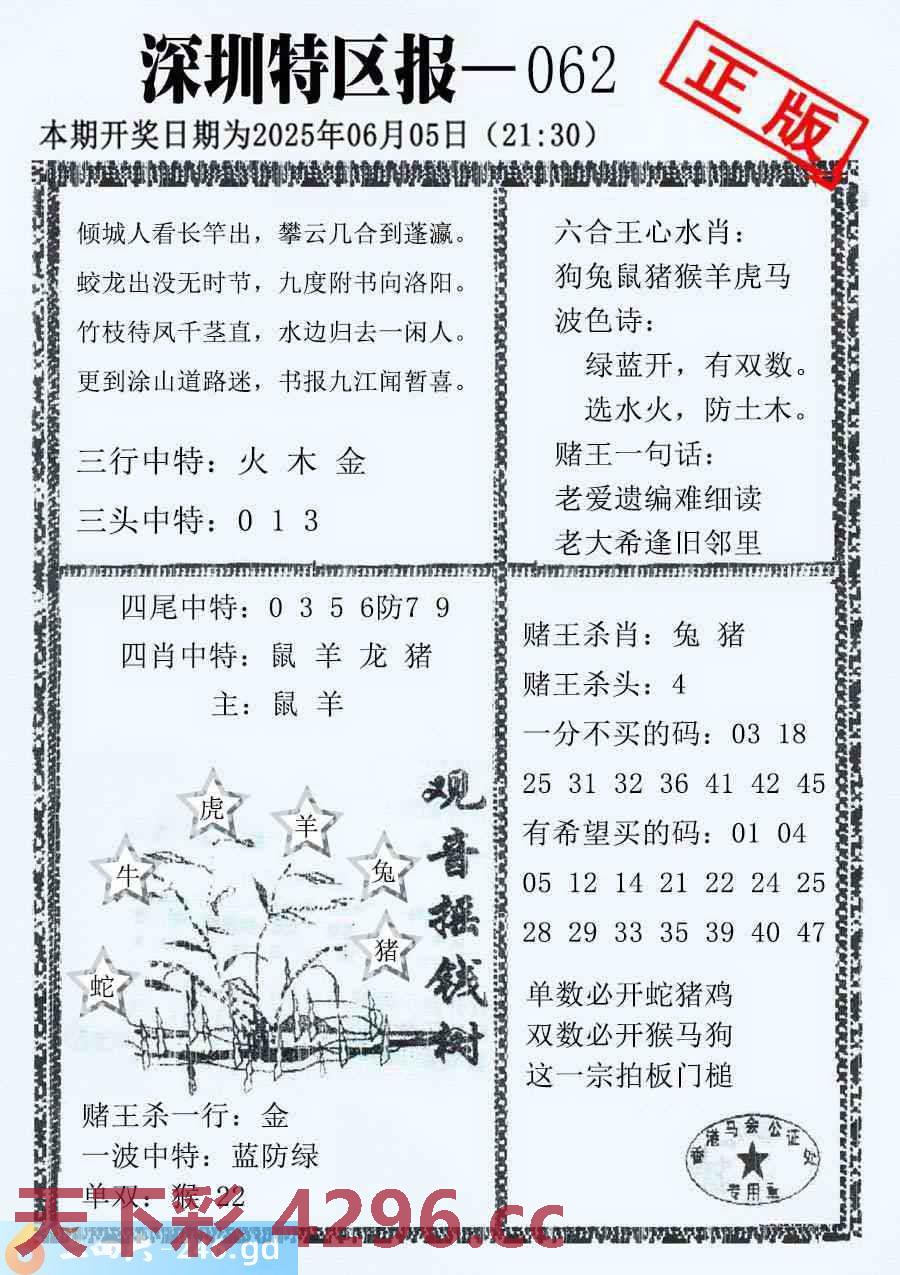 深圳特区报—062
正版
本期开奖日期为2025年06月05日（21:30）
倾城人看长竿出，攀云几合到蓬瀛。
蛟龙出没无时节，九度附书向洛阳。
竹枝待凤千茎直，水边归去一闲人。
更到涂山道路迷，书报九江闻暂喜。
三行中特：火 木 金
三头中特：0 1 3
六合王心水肖：
狗兔鼠猪猴羊虎马
波色诗：
绿蓝开，有双数。
选水火，防土木。
赌王一句话：
老爱遗编难细读
老大希逢旧邻里
四尾中特：0 3 5 6防7 9
四肖中特：鼠 羊 龙 猪
主：鼠 羊
虎
羊
牛
兔
猪
蛇
观音摇钱树
赌王杀一行：金
一波中特：蓝防绿
单双：猴 22
赌王杀肖：兔 猪
赌王杀头：4
一分不买的码：03 18
25 31 32 36 41 42 45
有希望买的码：01 04
05 12 14 21 22 24 25
28 29 33 35 39 40 47
单数必开蛇猪鸡
双数必开猴马狗
这一宗拍板门槌
香港马会公证处
专用章
天下彩 4296.cc